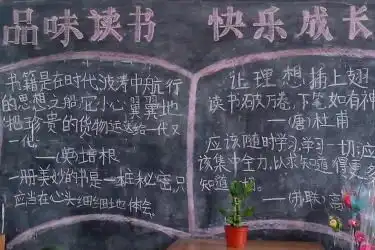 品味读书 快乐成长
书籍是在时代波涛中航行
的思想之船,它小心翼翼地
把珍贵的货物运送给一代又
一代
——(英)培根
一册美妙的书是一桩秘密只
应当在心头细细地体会。
让理想插上翅
读书破万卷,下笔如有神
——(唐)杜甫
应该随时学习,学习一切;应
该集中全力,以求知道得更多
知道一切。
——(苏联)高